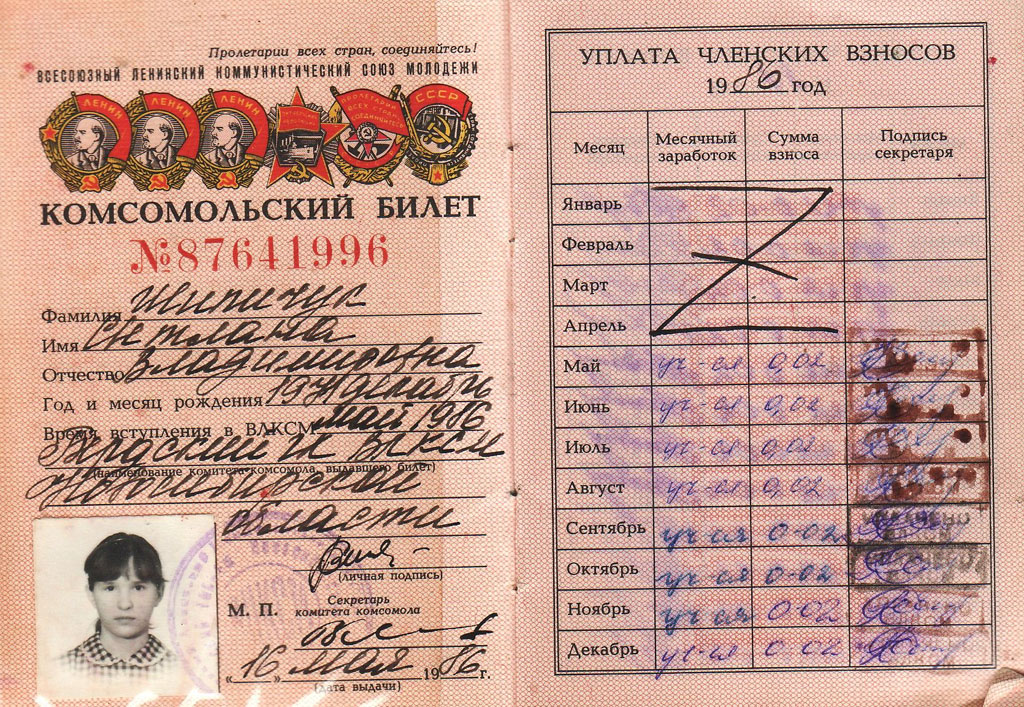 Пролетарии всех стран, соединяйтесь!
ВСЕСОЮЗНЫЙ ЛЕНИНСКИЙ КОММУНИСТИЧЕСКИЙ СОЮЗ МОЛОДЕЖИ
ЛЕНИН ЛЕНИН ЛЕНИН ПРОЛЕТАРИИ ВСЕХ СТРАН СОЕДИНЯЙТЕСЬ СССР
КОМСОМОЛЬСКИЙ БИЛЕТ
№87641996
Фамилия
Имя Светлана
Отчество Владимировна
Год и месяц рождения 1971 декабрь
Время вступления в ВЛКСМ май 1986
ГК ВЛКСМ
(наименование комитета комсомола, выдавшего билет)
Новосибирской
области
(личная подпись)
М. П. Секретарь
комитета комсомола
„16" мая 1986 г.
(дата выдачи)
УПЛАТА ЧЛЕНСКИХ ВЗНОСОВ
1986 год
Месяц Месячный заработок Сумма взноса Подпись секретаря
Январь
Февраль
Март
Апрель
Май уч-ся 0,02
Июнь уч-ся 0,02
Июль уч-ся 0,02
Август уч-ся 0,02
Сентябрь уч-ся 0-02
Октябрь уч-ся 0-02
Ноябрь уч-ся 0-02
Декабрь уч-ся 0-02